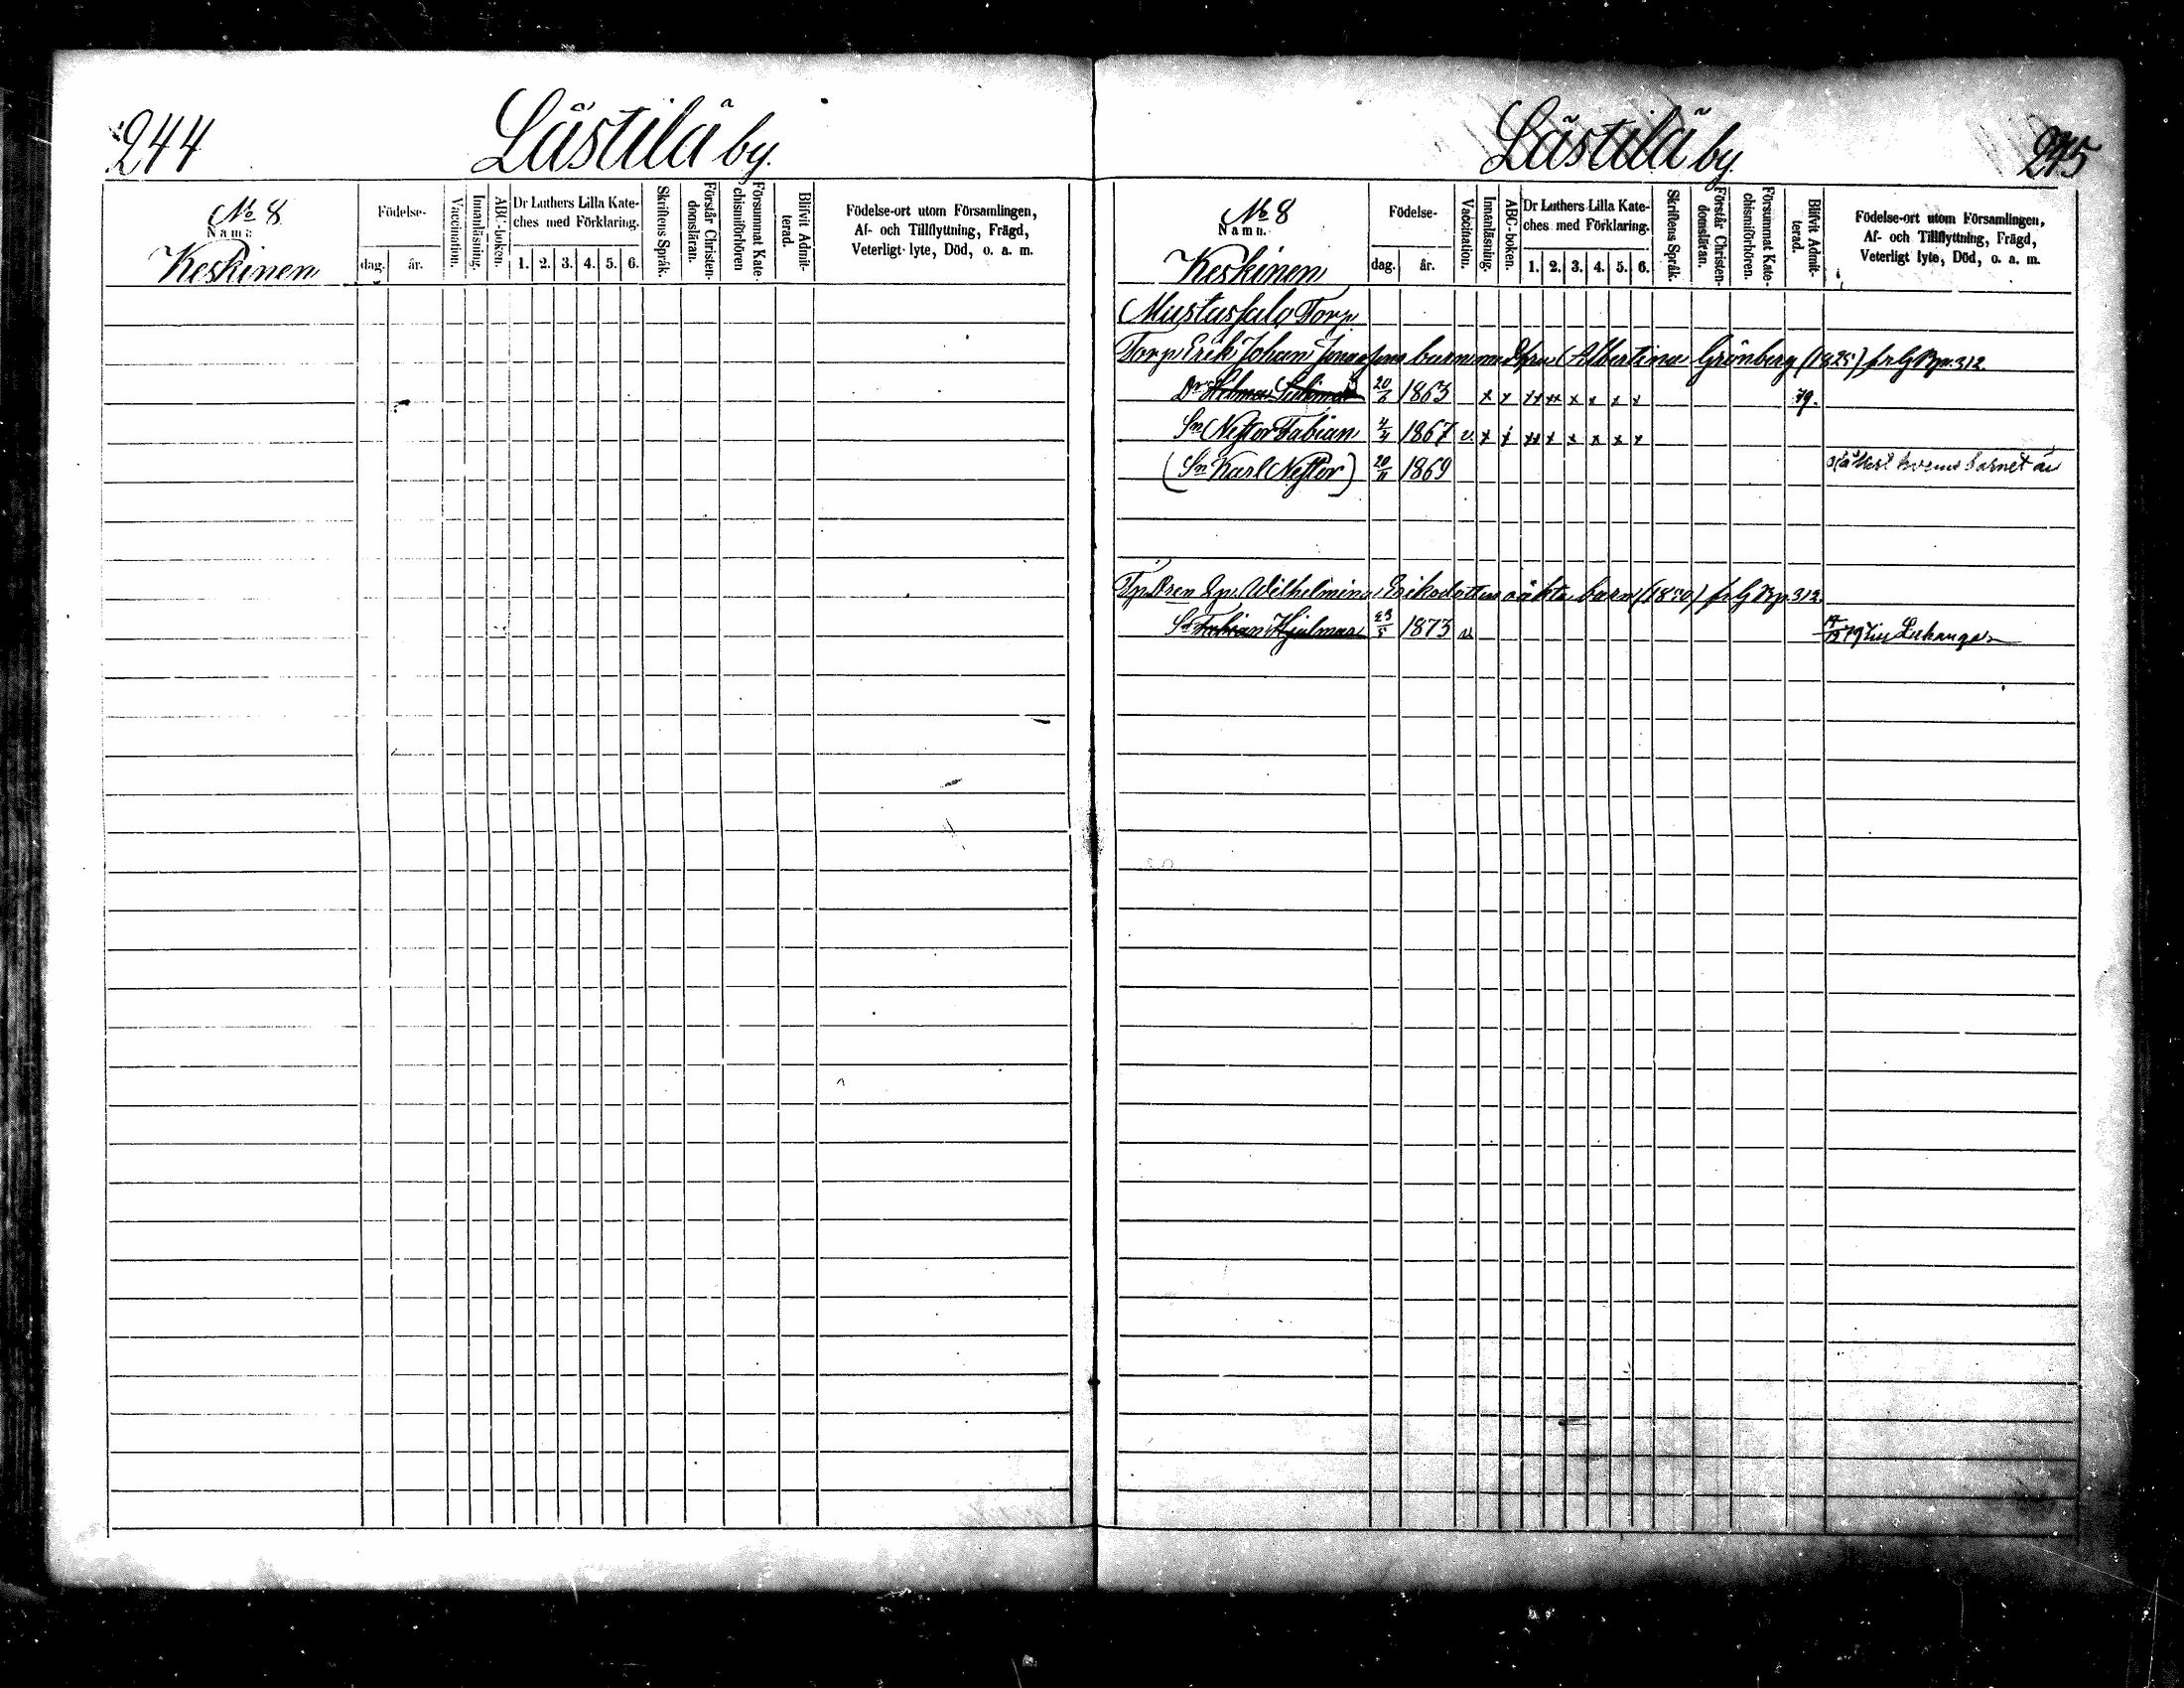 244
Lästilä by.
No 8
Namn
Keskinen
Födelse-
dag.
år.
Vaccination.
Innanläsning.
ABC-boken.
Dr Luthers Lilla Kate-
ches med Förklaring.
1. 2. 3. 4. 5. 6.
Skriftens Språk.
Förstår Christen-
domsläran.
Försummat Kate-
chismiförhören
Blifvit Admit-
terad.
Födelse-ort utom Församlingen,
Af- och Tillflyttning, Frägd,
Veterligt lyte, Död, o. a. m.
Lästilä by.
245
No 8
Namn.
Keskinen
Födelse-
dag.
år.
Vaccination.
Innanläsning.
ABC-boken.
Dr Luthers Lilla Kate-
ches med Förklaring.
1. 2. 3. 4. 5. 6.
Skriftens Språk.
Förstår Christen-
domsläran.
Försummat Kate-
chismiförhören.
Blifvit Admit-
terad.
Födelse-ort utom Församlingen,
Af- och Tillflyttning, Frägd,
Veterligt lyte, Död, o. a. m.
Mustassalo Torp
Torp. Erik Johan barn med Albertina Grönberg (1825) p. 312
Dr 1863 x x xx xx x x x x 79.
Sn Nestor Fabian 4/4 1867 v. x x xx x x x x x
(Sn Karl Nestor) 20/11 1869 hvems barnet är
Wilhelmina Eriksdotters oäkta barn (1850) p. 312.
Sn Fabian Hjalmar 23/5 1873 v. 79 till